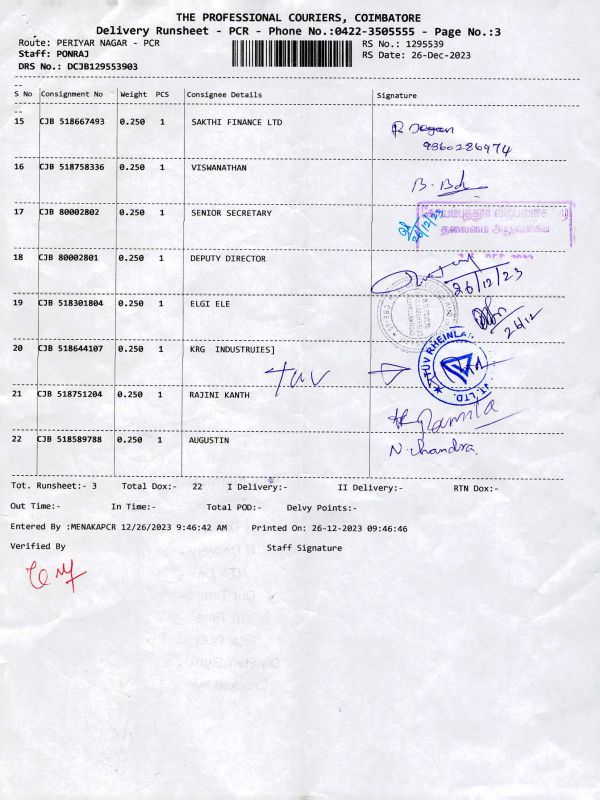 THE PROFESSIONAL COURIERS, COIMBATORE
Delivery Runsheet - PCR - Phone No.:0422-3505555 - Page No.:3
Route: PERIYAR NAGAR - PCR RS No.: 1295539
Staff: PONRAJ RS Date: 26-Dec-2023
DRS No.: DCJB129553903
S No Consignment No Weight PCS Consignee Details Signature
15 CJB 518667493 0.250 1 SAKTHI FINANCE LTD
9360286974
16 CJB 518758336 0.250 1 VISWANATHAN
17 CJB 80002802 0.250 1 SENIOR SECRETARY 26/12/23
தலைமை அலுவலகம்
18 CJB 80002801 0.250 1 DEPUTY DIRECTOR 26/12/23
19 CJB 518301804 0.250 1 ELGI ELE 26/12
20 CJB 518644107 0.250 1 KRG INDUSTRUIES]
TUV
21 CJB 518751204 0.250 1 RAJINI KANTH
22 CJB 518589788 0.250 1 AUGUSTIN N. Chandra
Tot. Runsheet:- 3 Total Dox:- 22 I Delivery:- II Delivery:- RTN Dox:-
Out Time:- In Time:- Total POD:- Delvy Points:-
Entered By :MENAKAPCR 12/26/2023 9:46:42 AM Printed On: 26-12-2023 09:46:46
Verified By Staff Signature